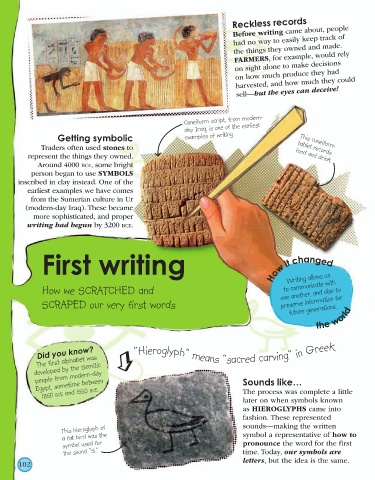 Reckless records
Before writing came about, people
had no way to easily keep track of
the things they owned and made.
FARMERS, for example, would rely
on sight alone to make decisions
on how much produce they had
harvested, and how much they could
sell—but the eyes can deceive!
Cuneiform script, from modern-
day Iraq, is one of the earliest
examples of writing.
This cuneiform
tablet records
food and drink.
Getting symbolic
Traders often used stones to
represent the things they owned.
Around 4000 BCE, some bright
person began to use SYMBOLS
inscribed in clay instead. One of the
earliest examples we have comes
from the Sumerian culture in Ur
(modern-day Iraq). These became
more sophisticated, and proper
writing had begun by 3200 BCE.
First writing
How we SCRATCHED and
SCRAPED our very first words
How it changed
Writing allows us
to communicate with
one another, and also to
preserve information for
future generations.
the world
Did you know?
The first alphabet was
developed by the Semitic
people from modern-day
Egypt, sometime between
1850 BCE and 1550 BCE.
"Hieroglyph" means "sacred carving" in Greek
This hieroglyph of
a fat bird was the
symbol used for
the sound "S."
Sounds like...
The process was complete a little
later on when symbols known
as HIEROGLYPHS came into
fashion. These represented
sounds—making the written
symbol a representative of how to
pronounce the word for the first
time. Today, our symbols are
letters, but the idea is the same.
102